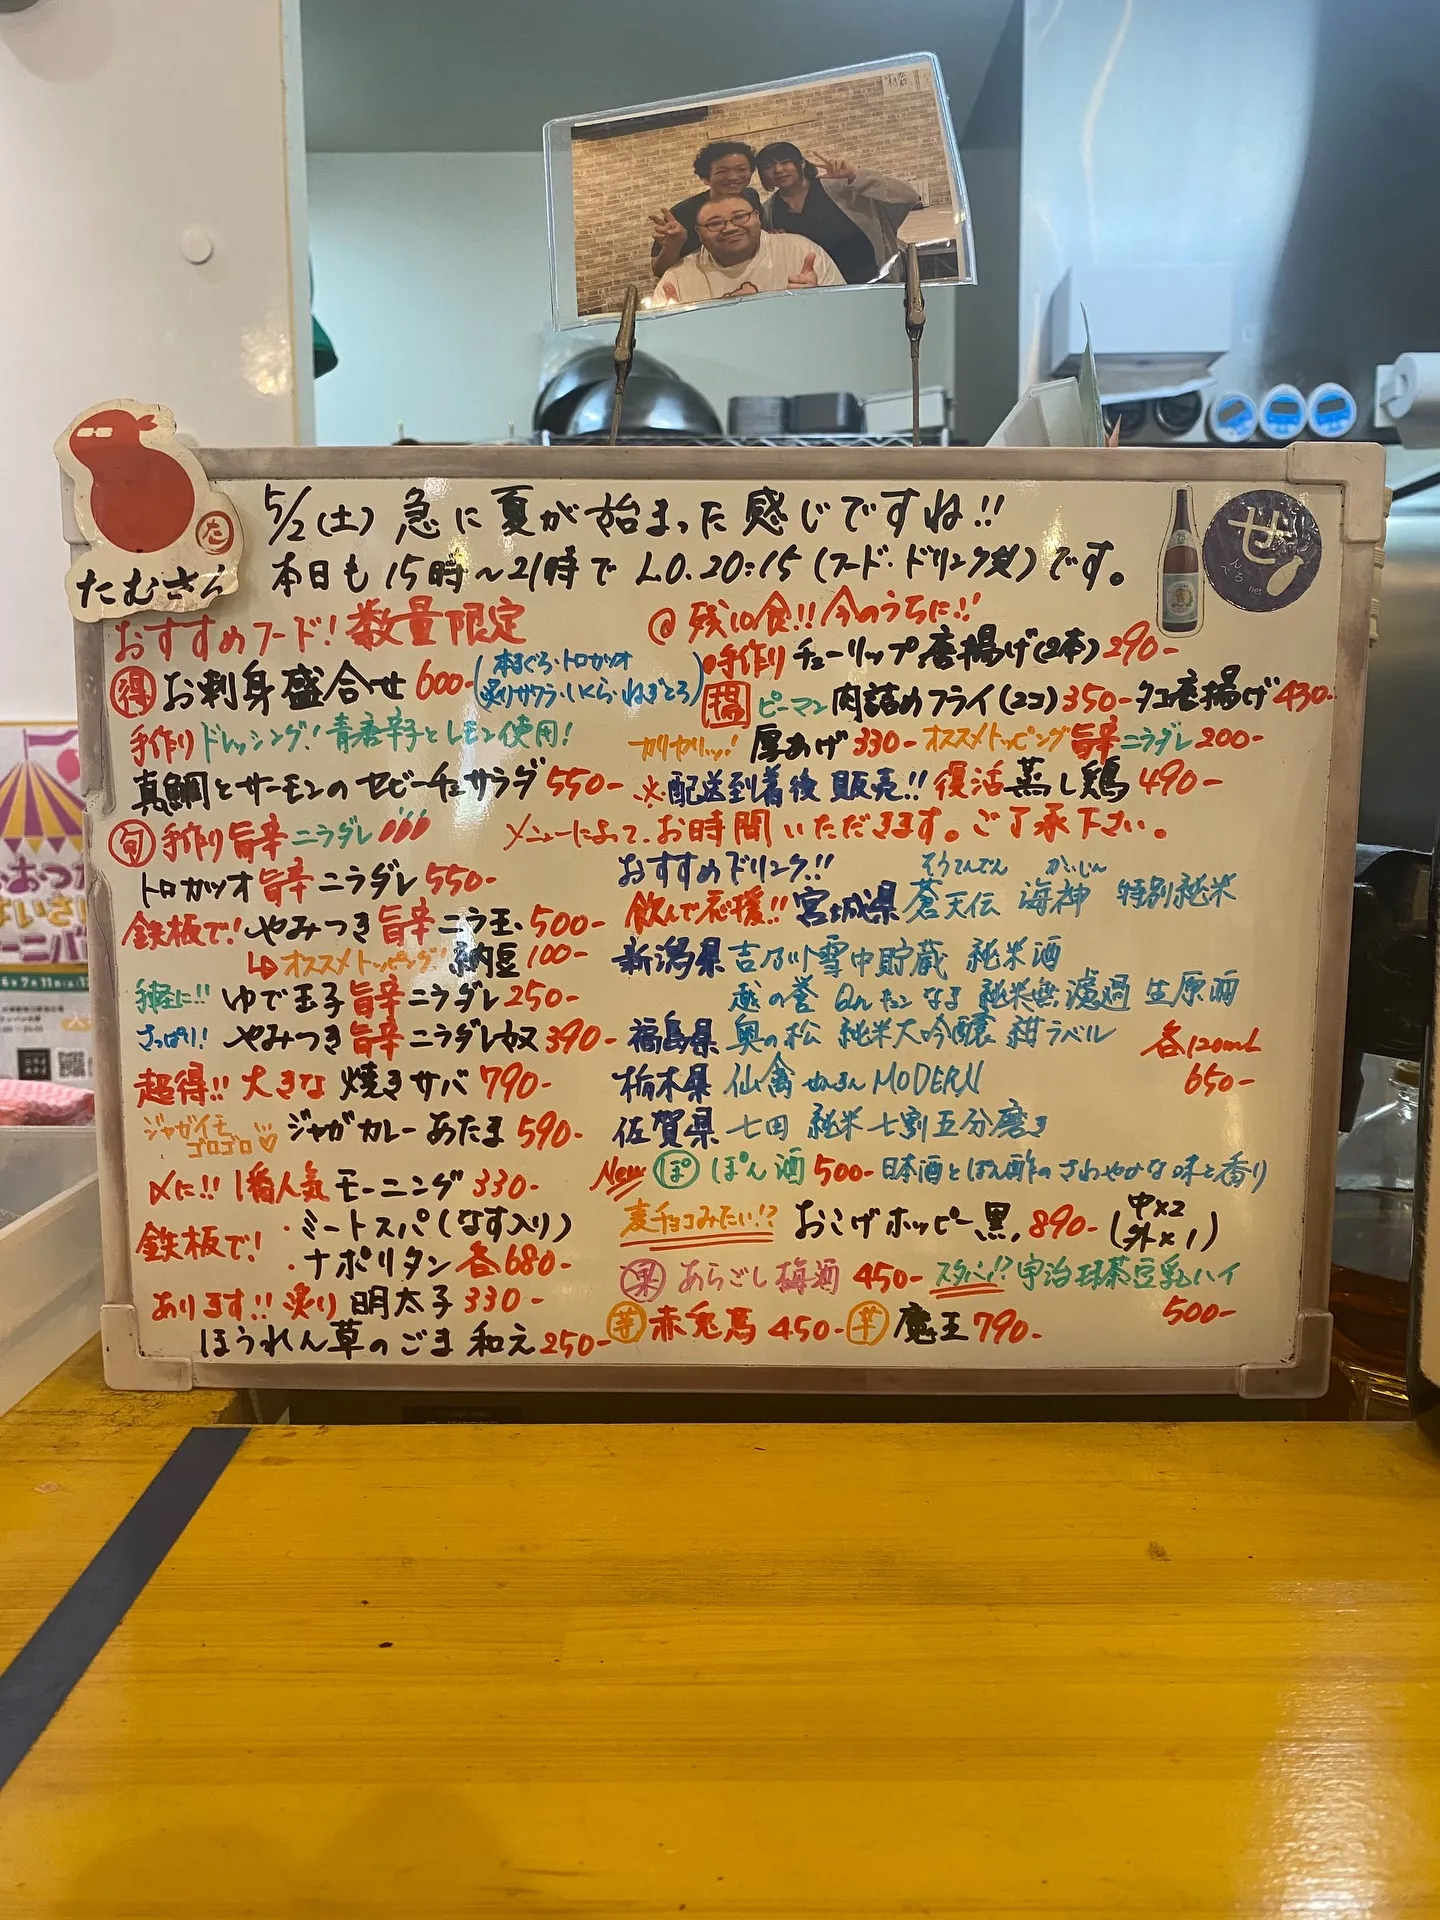 5/2(土) 急に夏が始まった感じですね!!
本日も15時〜21時で L.O.20:15 (フード・ドリンク共)です。
たむさん
た
ぜ
おすすめフード!数量限定
得 お刺身盛合せ 600- (本まぐろ・トロカツオ
炙りサワラ・いくら・ねぎとろ)
手作りドレッシング!青唐辛子とレモン使用!
真鯛とサーモンのセビーチェサラダ 550-
旬 手作り旨辛ニラダレ
トロカツオ旨辛ニラダレ 550-
鉄板で!やみつき旨辛ニラ玉 500-
オススメトッピング!納豆 100-
手軽に!!ゆで玉子旨辛ニラダレ 250-
さっぱり!やみつき旨辛ニラダレ奴 390-
超得!!大きな焼きサバ 790-
ジャガイモ
ゴロゴロ♡ ジャガカレーあたま 590-
〆に!!1番人気モーニング 330-
鉄板で!・ミートスパ(なす入り)
・ナポリタン 各680-
あります!!炙り明太子 330-
ほうれん草のごま和え 250-
@残1食!!今のうちに!!
手作りチューリップ唐揚げ(2本) 290-
揚 ピーマン肉詰めフライ(2コ) 350- タコ唐揚げ 430-
カリカリッ!厚あげ 330- オススメトッピング旨辛ニラダレ 200-
※配送到着後販売!!復活蒸し鶏 490-
メニューによって、お時間いただきます。ご了承下さい。
おすすめドリンク!!
そうてんでん かいじん
飲んで応援!!宮城県 蒼天伝 海神 特別純米
新潟県 吉乃川雪中貯蔵 純米酒
越の誉 純米無濾過生原酒
福島県 奥の松 純米大吟醸 紺ラベル
各120mL
650-
栃木県 仙禽 せんきん MODERN
佐賀県 七田 純米七割五分磨き
New ぽ ぽん酒 500- 日本酒とぽん酢のさわやかな味と香り
麦チョコみたい!? おこげホッピー黒 890- (中×2
外×1)
果 あらごし梅酒 450- スタバ!?宇治抹茶豆乳ハイ
500-
芋 赤兎馬 450- 芋 魔王 790-